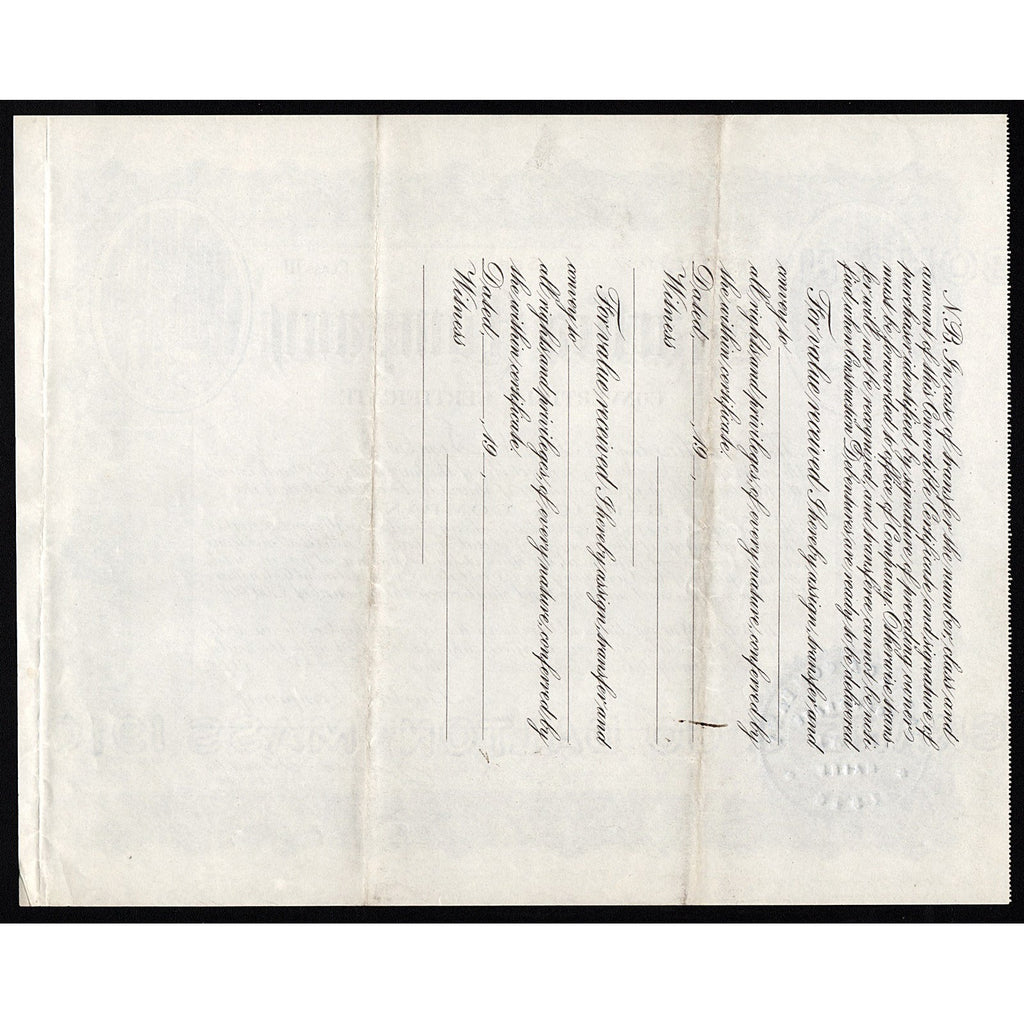 N.B. In case of transfer the number, class and
amount of this Convertible Certificate and signature of
purchaser identified by signature of preceding owner
must be forwarded to office of Company. Otherwise trans-
fer will not be recognized, and transferee cannot be noti-
fied when Construction Debentures are ready to be delivered
For value received I hereby assign, transfer and
convey to
all rights and privileges, of every nature, conferred by
the within certificate.
Dated , 19 ,
Witness
For value received I hereby assign, transfer and
convey to
all rights and privileges, of every nature, conferred by
the within certificate.
Dated , 19 ,
Witness